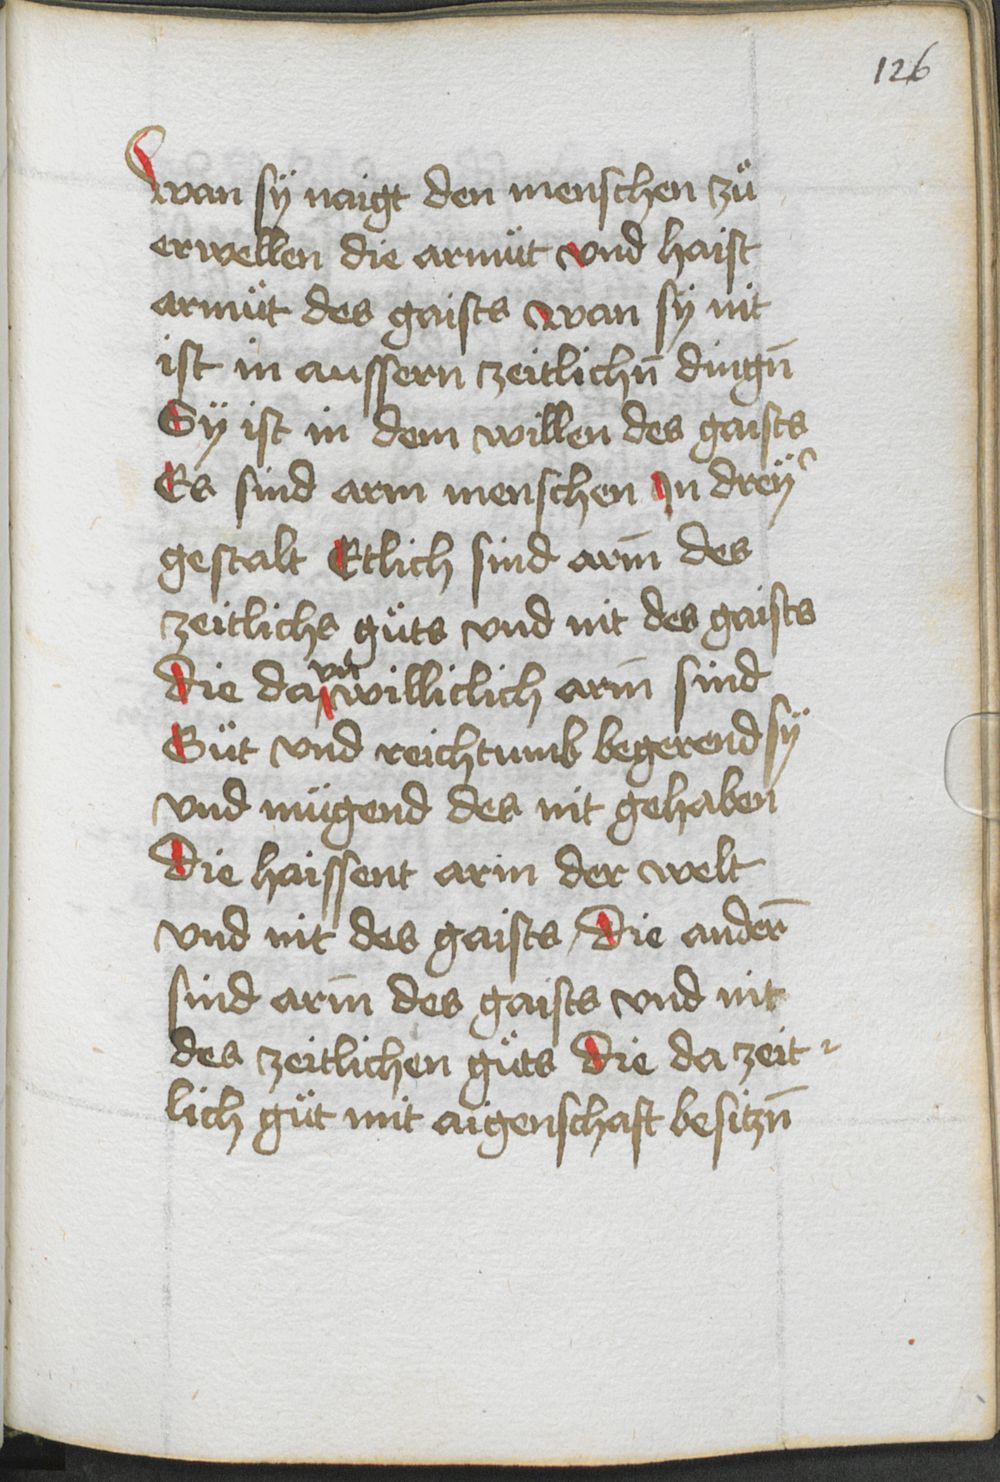 126
Wan sÿ naigt den menschen zuͦ
erwellen die armuͦt vnd haist
armuͦt des gaists wan sÿ nit
ist in aussern zeitlichn̄ dingn̄
Sÿ ist in dem willen des gaists
Es sind arm menschen In dreÿ
gestalt Etlich sind arm̄ des
zeitlichs guͦts vnd nit des gaists
vn̄
die da williclich arm̄ sind
Guͦt vnd reichtumb begerend sÿ
vnd mügend des nit gehaben
Die haissent arm der welt
vnd nit des gaists Dieander̄
sind arm̄ des gaists vnd nit
des zeitlichen guͦts Die da zeit
lich guͦt mit aigenschaft besitzn̄